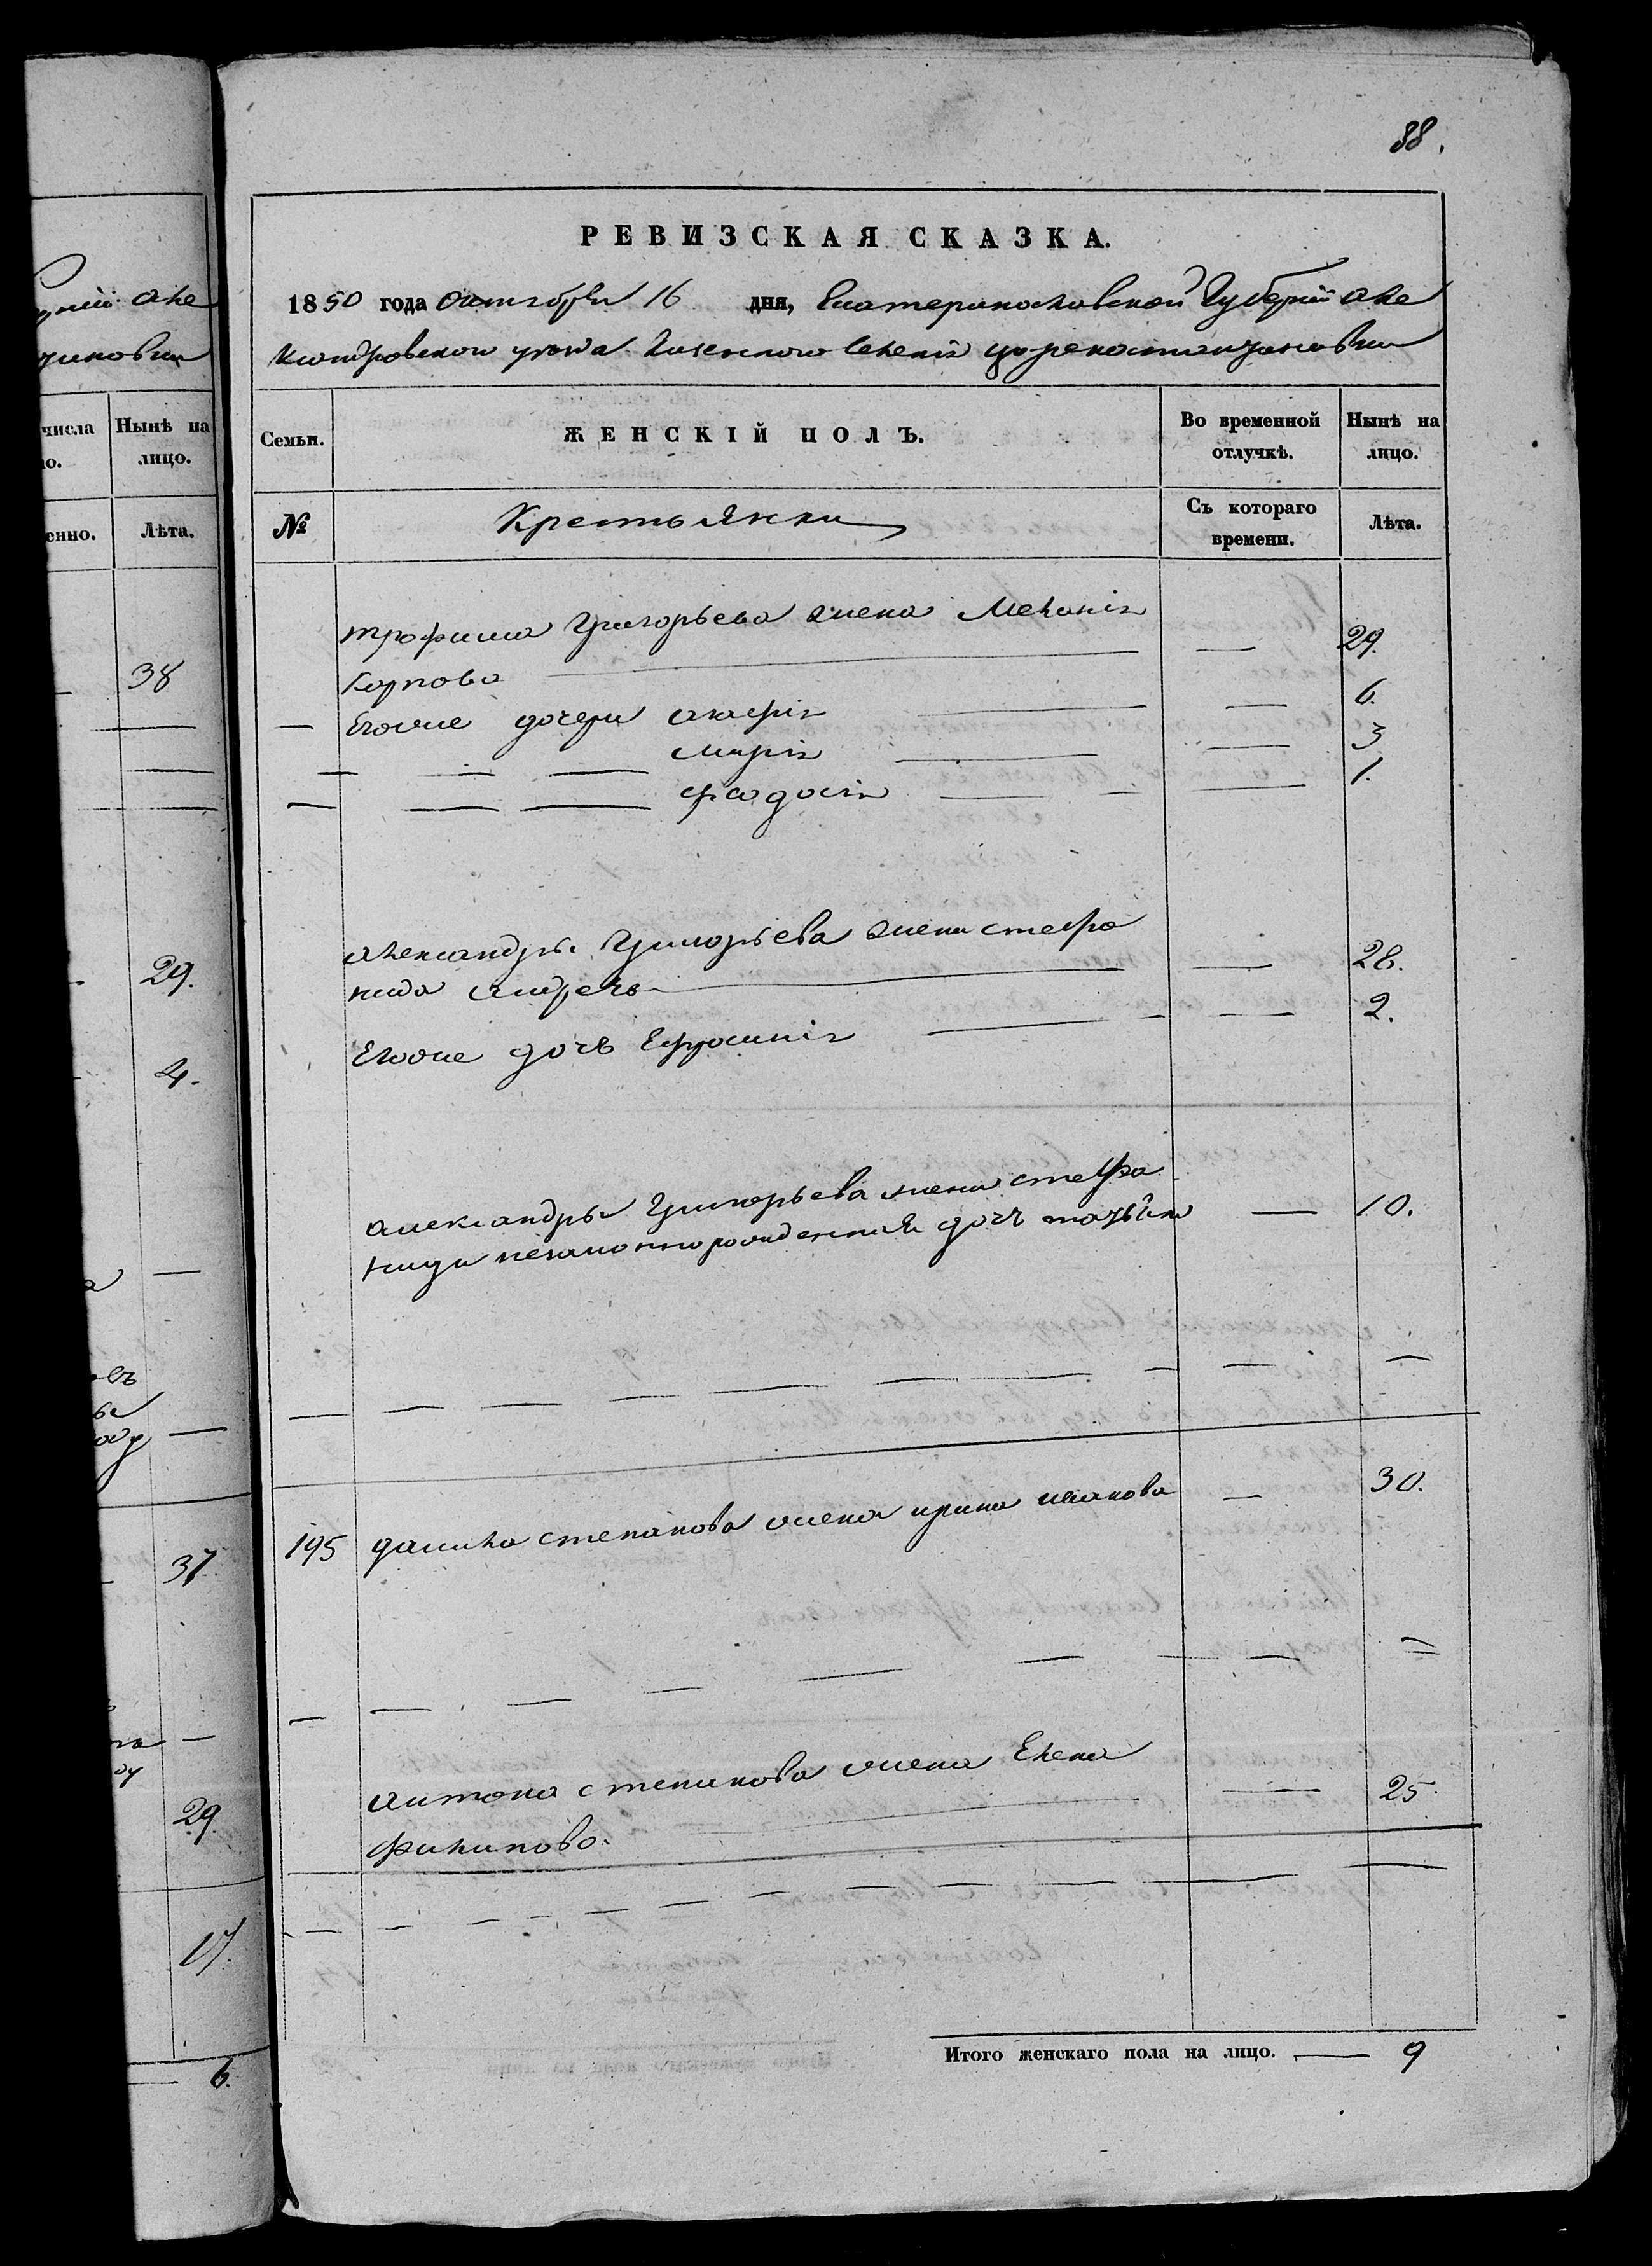 уніи але
88.
РЕВИЗСКАЯ СКАЗКА.
1850 года октября 16 дня, Екатеринославской Губерніи але
ксандровскаго уѣзда казенного селенія цареконстантиновки
числа
Нынѣ на
лицо.
енно.
Лѣта.
Семьи.
ЖЕНСКІЙ ПОЛЪ.
Во временной
отлучкѣ.
Нынѣ на
лицо.
№
Крестьянки
Съ котораго
времени.
Лѣта.
трофима Григорьева жена Меланія
карпова — — 29.
— Егоже дочери агафія — — 6.
— — — марія — — 3
— — — феодосія — — 1.
александра Григорьева жена стефа
нида андреева — — 28.
Егоже дочь Ефросинія — — 2.
александры Григорьева жены стефа
ниды незаконнорожденная дочь — 10.
195 данила степанова жена ирина иванова — 30.
антона степанова жена Елена
филипова — — 25.
Итого женскаго пола на лицо. — 9
38
29.
4.
37
29.
17.
6.